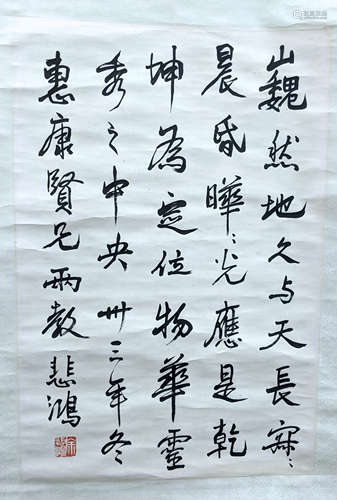 山巍然地久与天長寂〻
晨昏曄〻光應是乾
坤為定位物華靈
秀之中央卅三年冬
惠康賢兄兩教悲鴻